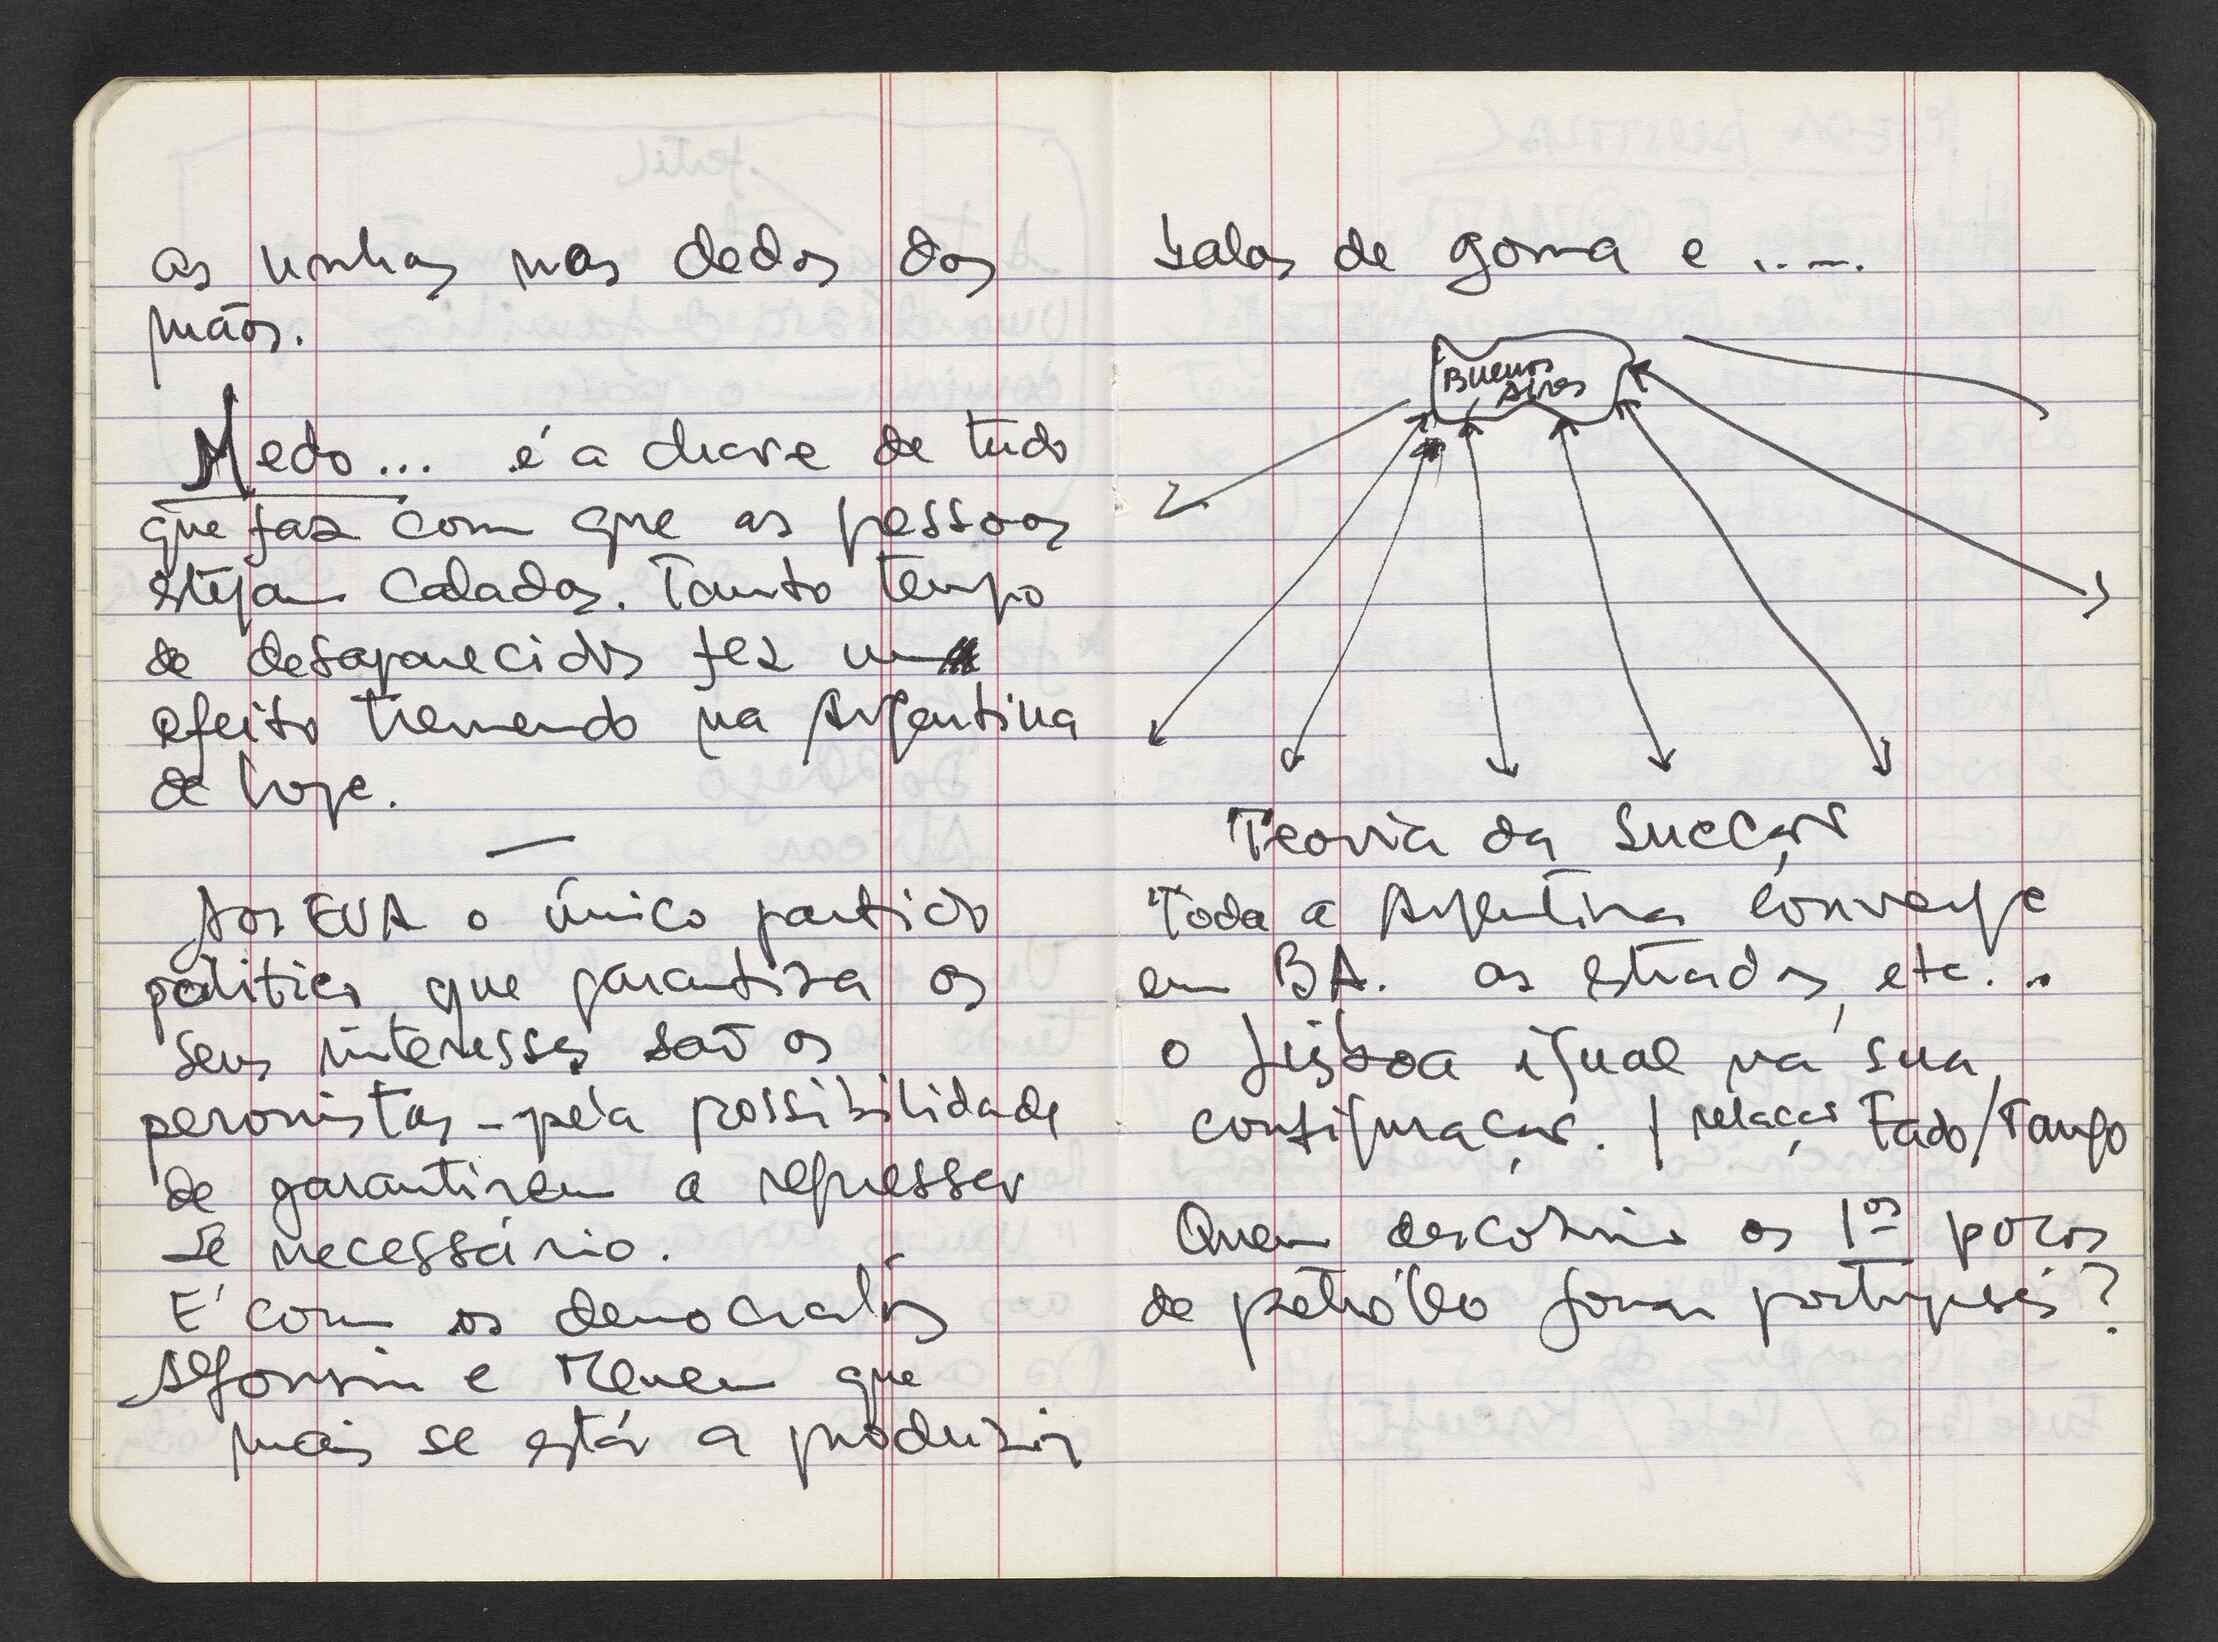 as unhas nos dedos das
mãos.
Medo... é a chave de tudo
que faz com que as pessoas
estejam caladas. Tanto tempo
de desaparecidos fez um
efeito tremendo na Argentina
de hoje.
—
Aos EUA o único partido
politico que garantiza os
seus interesses são os
peronistas - pela possibilidade
de garantirem a repressão
se necessário.
E' com os democratas
Alfonsin e Menem que
mais se está a produzir
balas de goma e .....
Buenos
Aires
Teoria da sucção
Toda a Argentina converge
em BA. as estradas, etc...
o Lisboa igual na sua
configuração. / relação Fado/Tango
Quem descobriu os 1os poços
de petróleo foram portugueses?